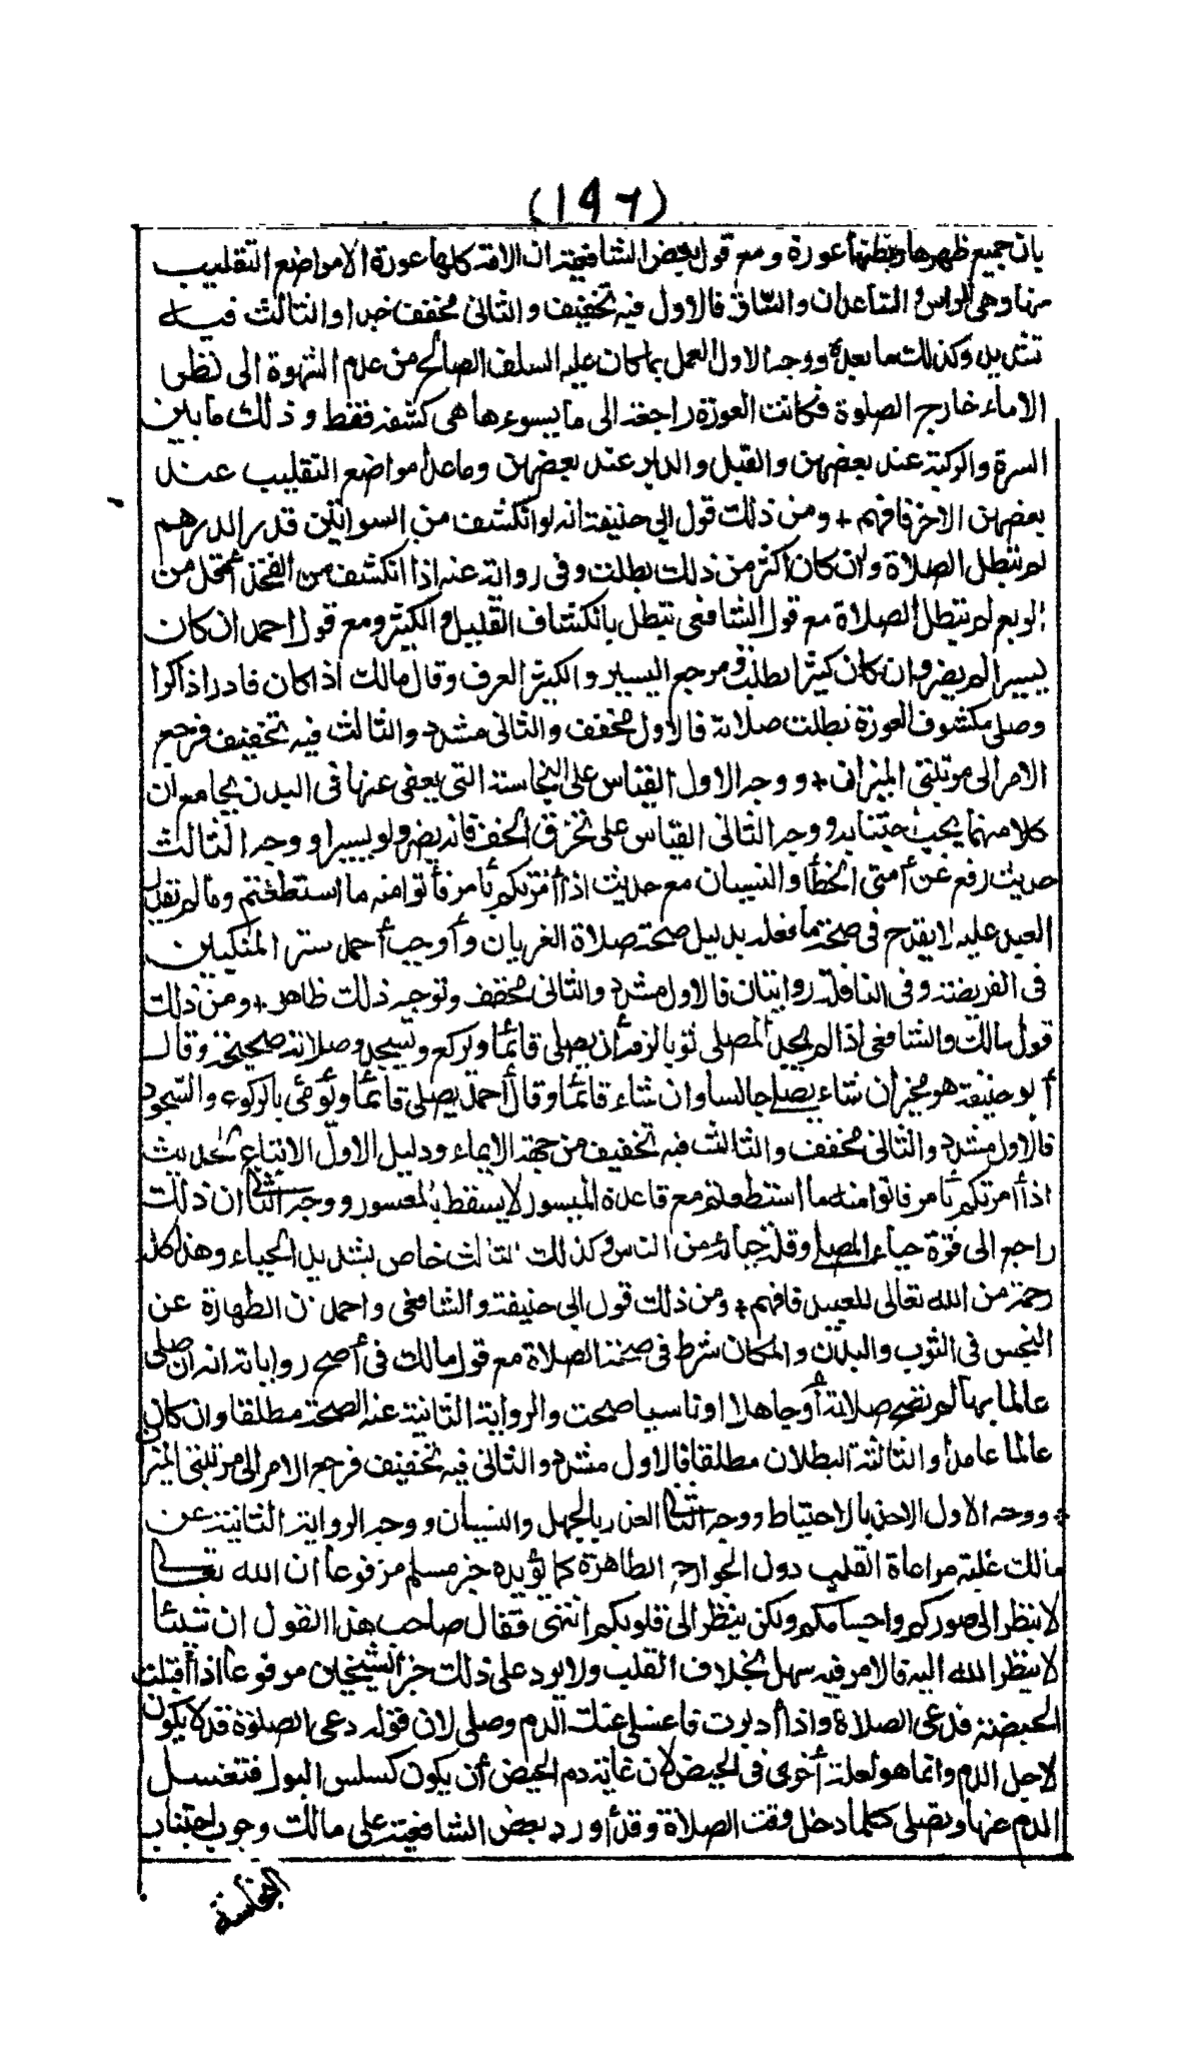 (١٩٦)
بان جميع ظهرها وبطنها عورة ومع قول بعض الشافعية ان الامة كلها عورة الا مواضع التقليب
منها وهى الراس والساعدان والساق فالاول فيه تخفيف والثانى مخفف جدا والثالث فيه
تشديد وكذلك ما بعده ووجه الاول العمل بما كان عليه السلف الصالح من عدم الشهوة الى نظر
الاماء خارج الصلوة فكانت العورة راجعة الى ما يسوءها هى كشفه فقط وذلك ما بين
السرة والركبة عند بعضهن والقبل والدبر عند بعضهن وماعدا مواضع التقليب عند
بعضهن الاخر فافهم + ومن ذلك قول ابي حنيفة انه لو انكشف من السوأتين قدر الدرهم
لم تبطل الصلاة وان كان اكثر من ذلك بطلت وفى رواية عنه اذا انكشف من الفخذ أقل من
الربع لم تبطل الصلاة مع قول الشافعى تبطل بانكشاف القليل والكثير ومع قول احمد ان كان
يسيرا لم يضر وان كان كثيرا بطلت ومرجع اليسير والكثير العرف وقال مالك اذا كان قادرا ذاكرا
وصلى مكشوف العورة بطلت صلاته فالاول مخفف والثانى مشدد والثالث فيه تخفيف فرجع
الامر الى مرتبتى الميزان + ووجه الاول القياس على النجاسة التى يعفى عنها فى البدن بجامع ان
كلا منهما يجب اجتنابه ووجه الثانى القياس على تخرق الخف فانه يضر ولو يسيرا ووجه الثالث
حديث رفع عن أمتى الخطأ والنسيان مع حديث اذا أمرتكم بأمر فأتوا منه ما استطعتم وما لم يقدر
العبد عليه لا يقدح فى صحة ما فعله بدليل صحة صلاة العريان وأوجب أحمد ستر المنكبين
فى الفريضة وفى النافلة روايتان فالاول مشدد والثانى مخفف وتوجيه ذلك ظاهر + ومن ذلك
قول مالك والشافعى اذا لم يجد المصلى ثوبا لزمه أن يصلى قائما ويركع ويسجد وصلاته صحيحة وقال
أبو حنيفة هو مخير ان شاء يصلى جالسا وان شاء قائما وقال أحمد يصلى قائما ويومئ بالركوع والسجود
فالاول مشدد والثانى مخفف والثالث فيه تخفيف من جهة الايماء ودليل الاول الاتباع لحديث
اذا أمرتكم بأمر فاتوا منه ما استطعتم مع قاعدة الميسور لا يسقط بالمعسور ووجه الثانى ان ذلك
راجع الى قوة حياء المصلى وقلة حيائه من الناس وكذلك الثالث خاص بشديد الحياء وهذا كله
رحمة من الله تعالى للعبيد فافهم + ومن ذلك قول ابي حنيفة والشافعى واحمد ان الطهارة عن
النجس فى الثوب والبدن والمكان شرط فى صحة الصلاة مع قول مالك فى أصح رواياته انه ان صلى
عالما بها لم تصح صلاته أو جاهلا او ناسيا صحت والرواية الثانية عنه الصحة مطلقا وان كان
عالما عامدا والثالثة البطلان مطلقا فالاول مشدد والثانى فيه تخفيف فرجع الامر الى مرتبتى الميز
ووجه الاول الاخذ بالاحتياط ووجه الثانى العذر بالجهل والنسيان ووجه الرواية الثانية عن
مالك غلبة مراعاة القلب دون الجوارح الظاهرة كما يؤيده خبر مسلم مرفوعا ان الله تعالى
لا ينظر الى صوركم واجسامكم ولكن ينظر الى قلوبكم انتهى فقال صاحب هذا القول ان شيئا
لا ينظر الله اليه فالامر فيه سهل بخلاف القلب ولا يرد على ذلك خبر الشيخين مرفوعا اذا أقبلت
الحيضة فدعى الصلاة واذا أدبرت فاغسلى عنك الدم وصلى لان قوله دعى الصلوة قد لا يكون
لاجل الدم وانما هو لعلة أخرى فى الحيض لان غاية دم الحيض أن يكون كسلس البول فتغسل
الدم عنها وتصلى كلما دخل وقت الصلاة وقد أورد بعض الشافعية على مالك وجوب اجتناب
النجاسة